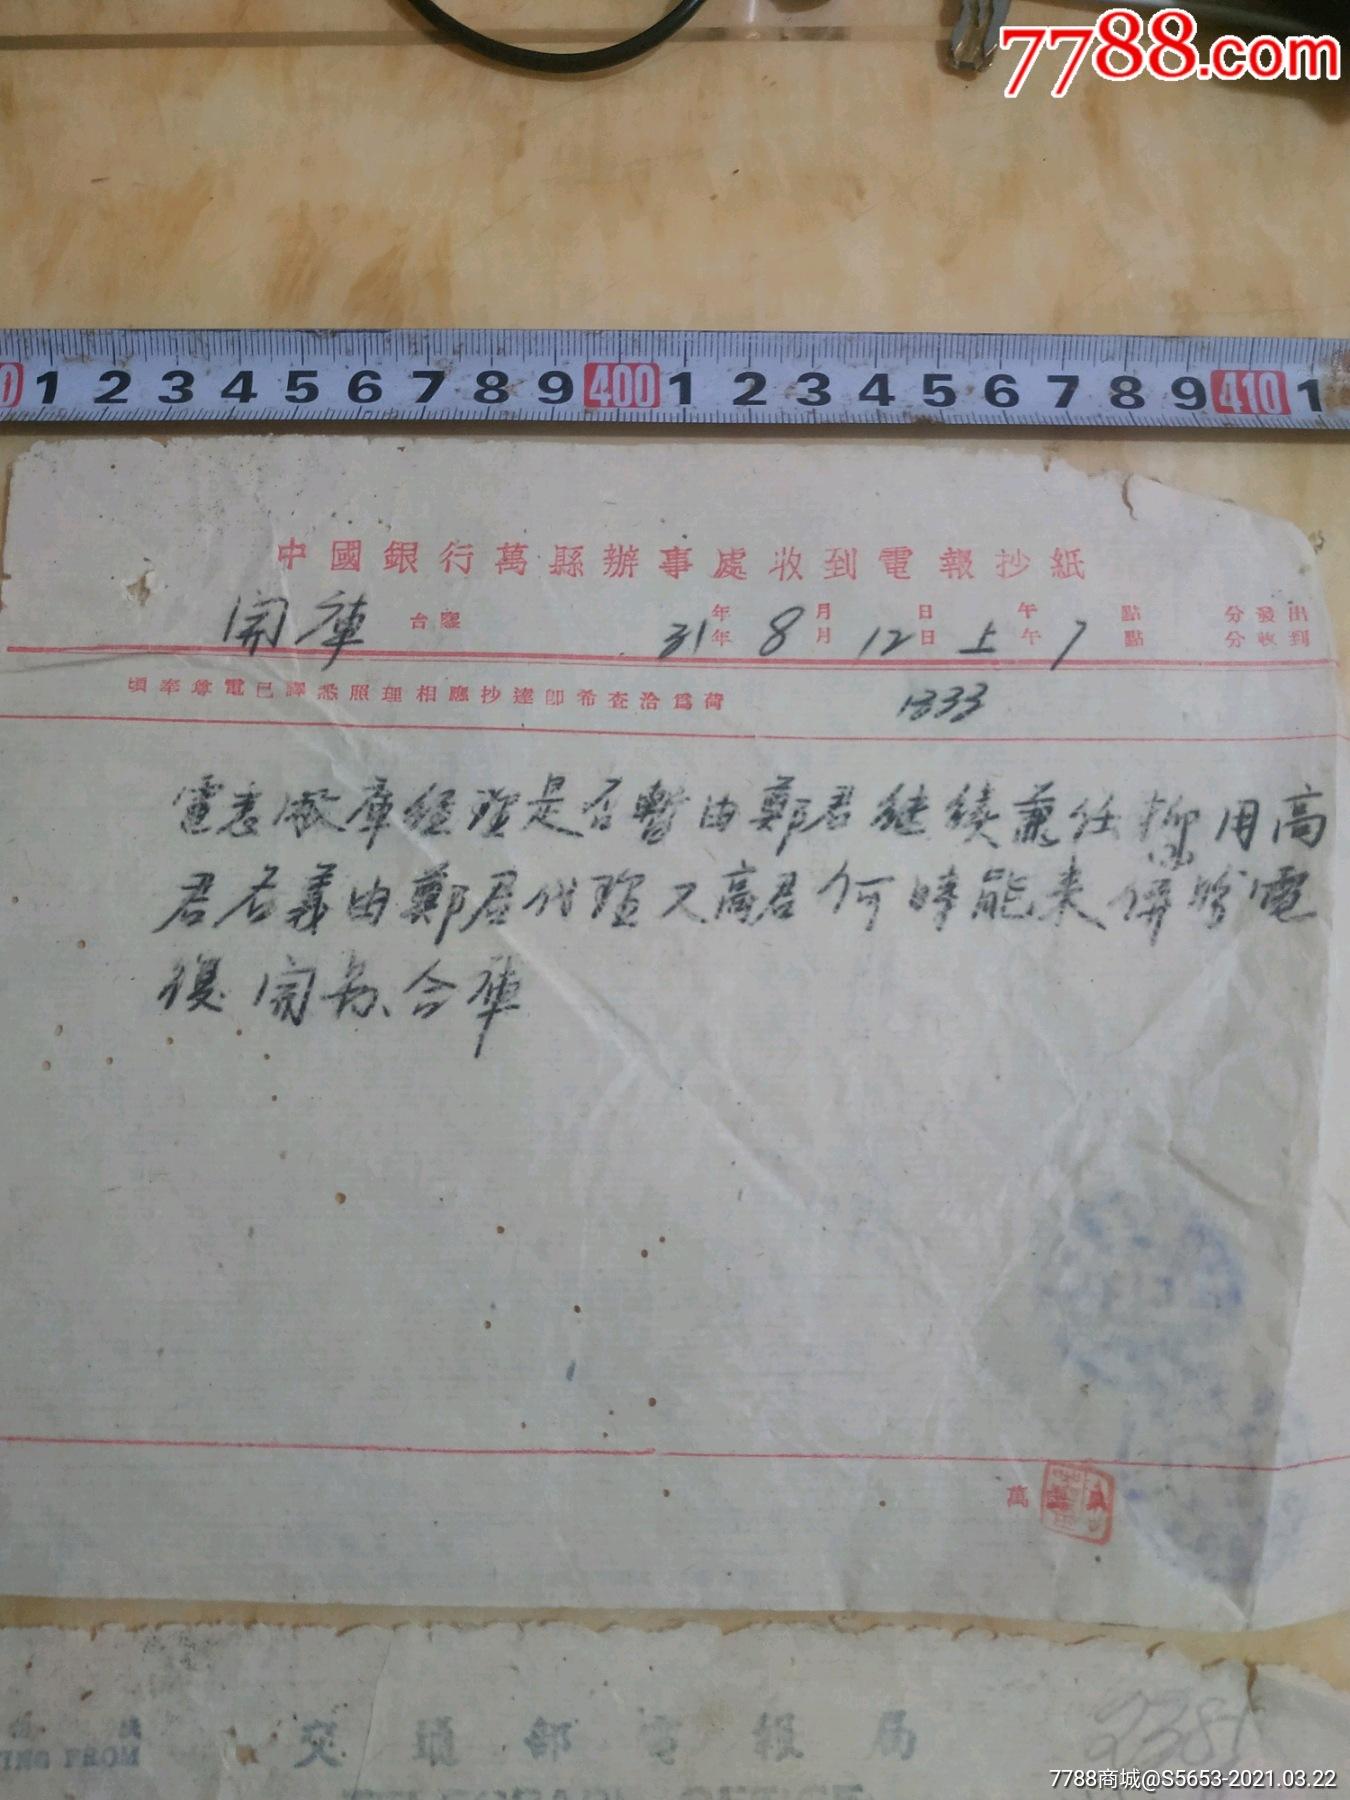 7788.com
0 1 2 3 4 5 6 7 8 9 400 1 2 3 4 5 6 7 8 9 410 1
中國銀行萬縣辦事處收到電報抄紙
開庫 台鑒
年 月 日 午 點 分發出
31年 8月 12日 上午 7點 分收到
頃奉尊電已譯悉照理相應抄達卽希查洽爲荷
1333
電悉敝庫經理是否暫由鄭君継續兼任抑用高
君名義由鄭君代理又高君何時能来併盼電
復 開 合庫
萬
交通部電報局
2381
7788商城@S5653-2021.03.22